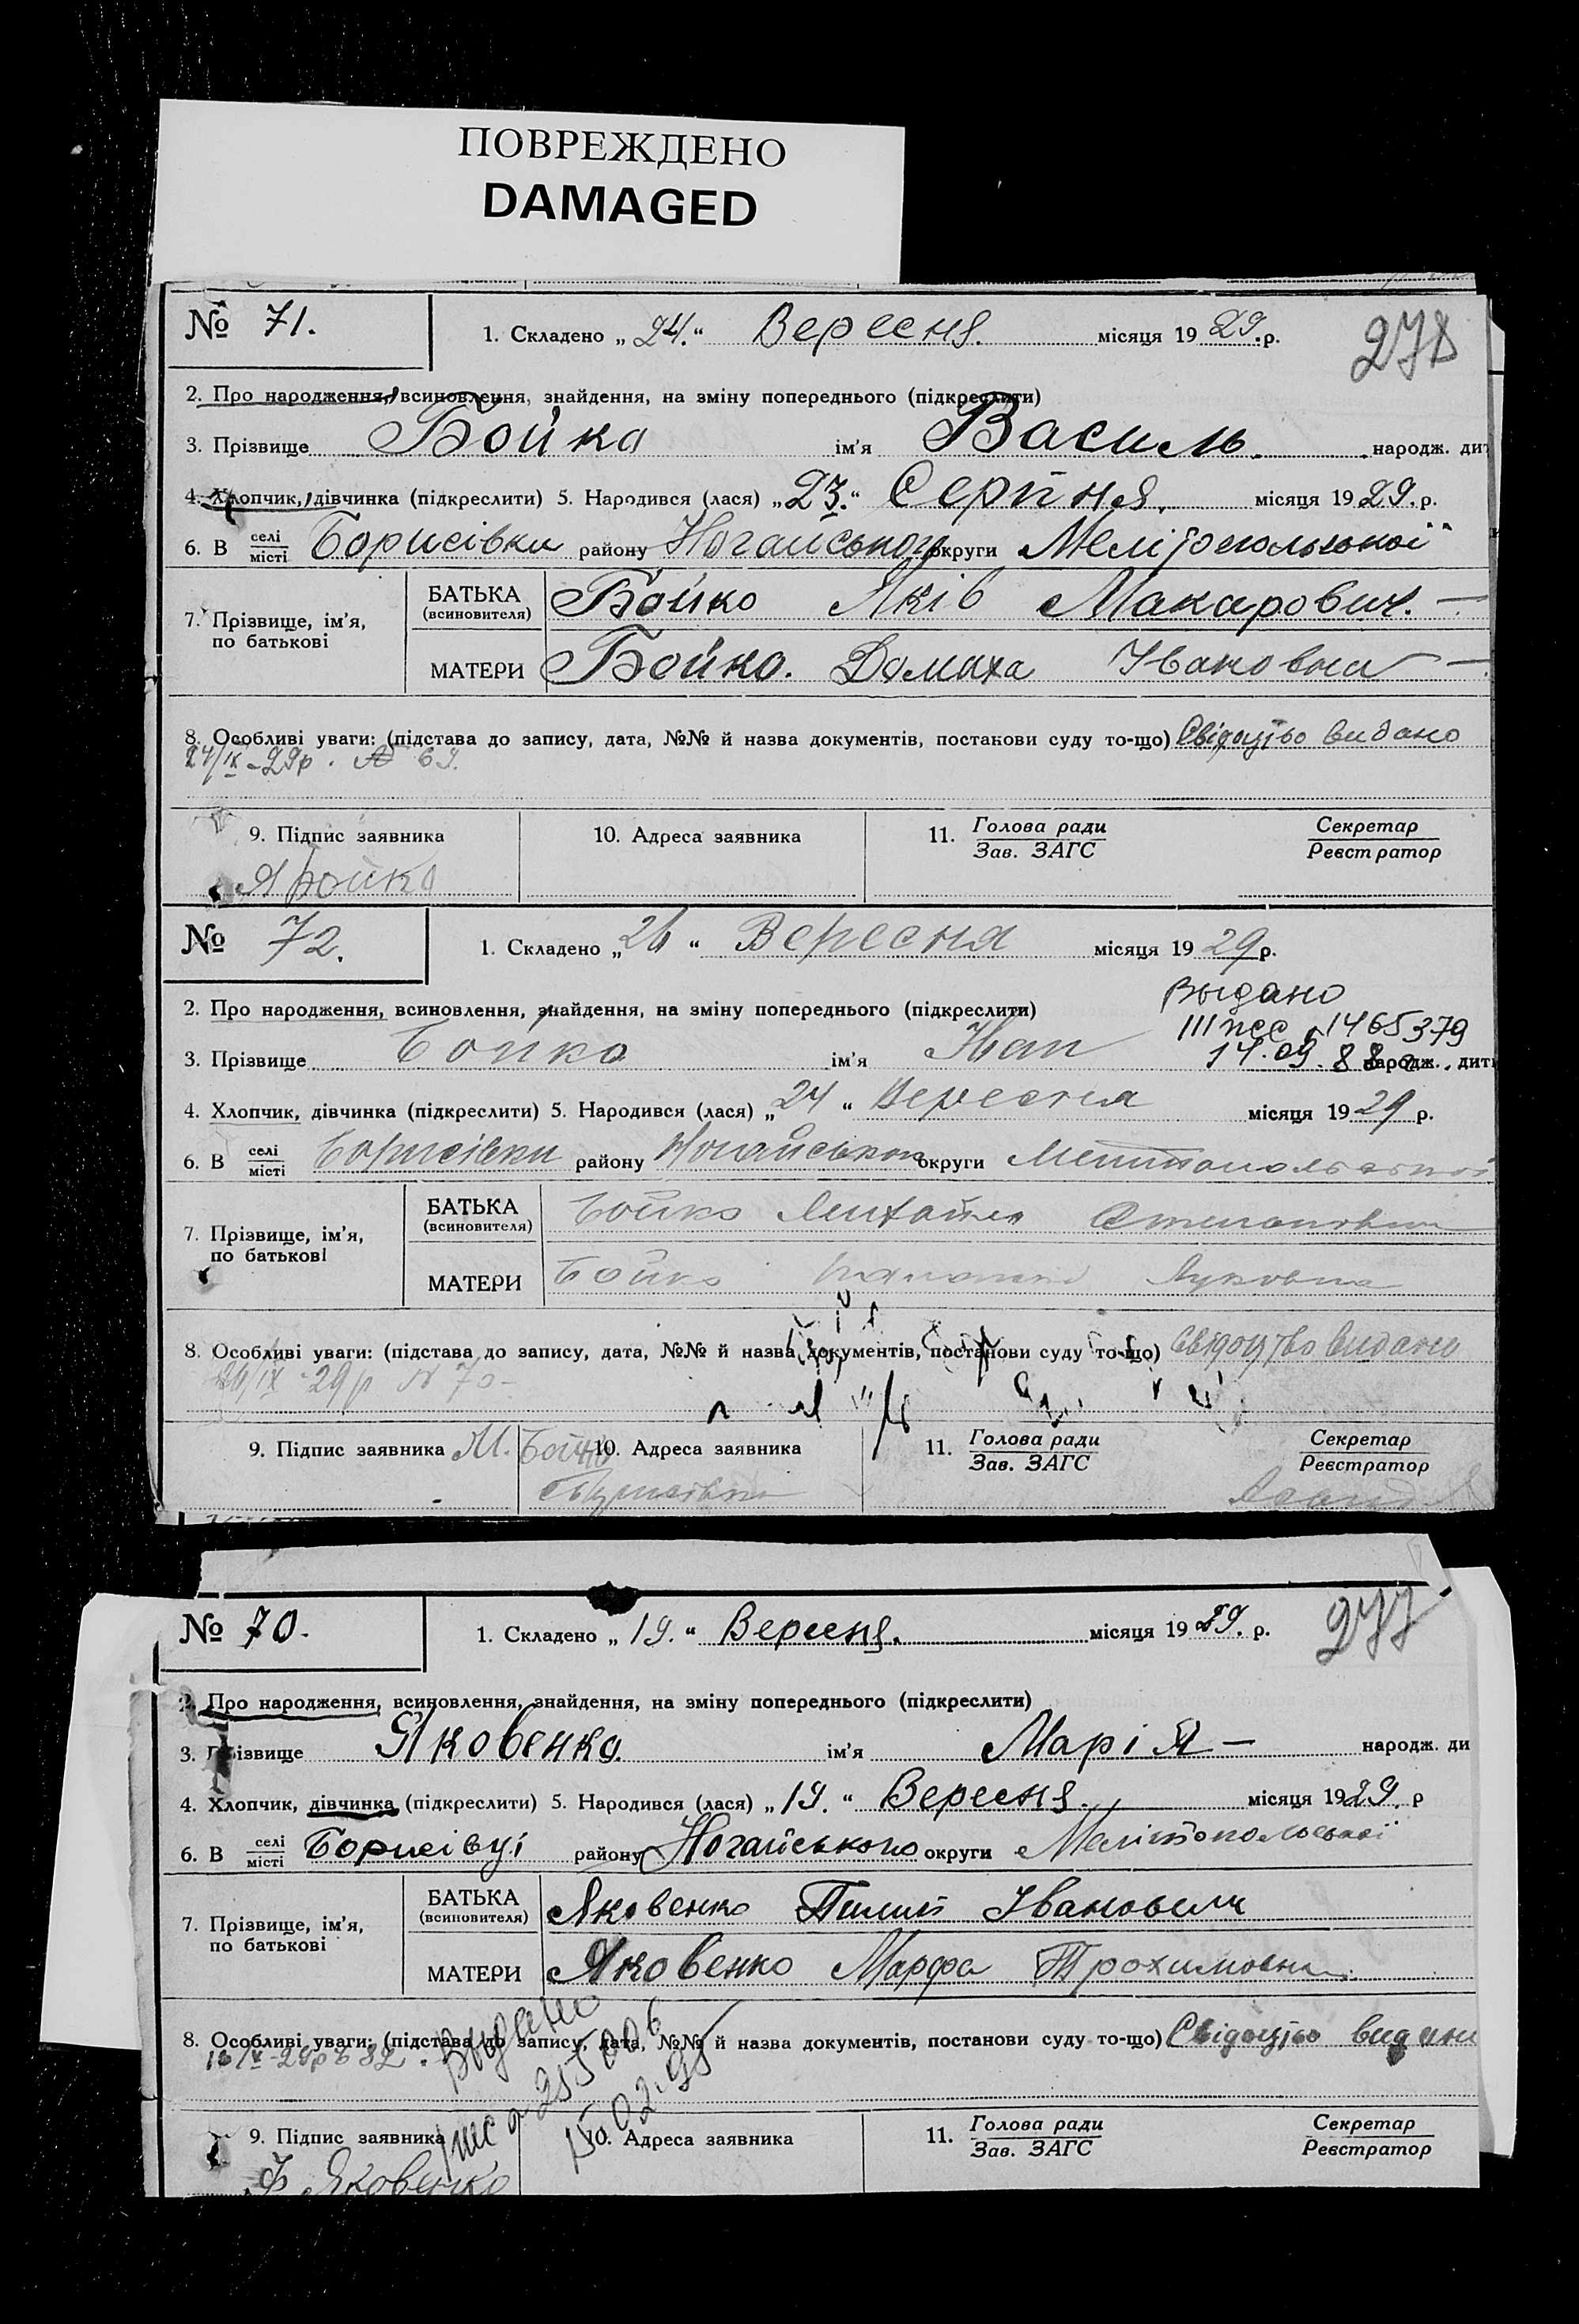 ПОВРЕЖДЕНО
DAMAGED
№ 71.
1. Складено „24.“ Вересня. місяця 1929.р.
278
2. Про народження, всиновлення, знайдення, на зміну попереднього (підкреслити)
3. Прізвище Бойко ім'я Василь. народж. дит
4. Хлопчик, дівчинка (підкреслити) 5. Народився (лася) „23.“ Серпня. місяця 1929.р.
6. В селі місті Борисівки району Ногайського округи Мелітопольської
7. Прізвище, ім'я, по батькові
БАТЬКА (всиновителя) Бойко Яків Макарович. —
МАТЕРИ Бойко. Домаха Івановна —
8. Особливі уваги: (підстава до запису, дата, №№ й назва документів, постанови суду то-що) Свідоцтво видано
24/IX-29р. № 69.
9. Підпис заявника
10. Адреса заявника
11. Голова ради Зав. ЗАГС
Секретар Реєстратор
Я Бойко
№ 72.
1. Складено „26“ Вересня місяця 1929р.
2. Про народження, всиновлення, знайдення, на зміну попереднього (підкреслити)
Выдано
III 1465379
3. Прізвище Бойко ім'я Іван народж. дит
14.09.88
4. Хлопчик, дівчинка (підкреслити) 5. Народився (лася) „24“ Вересня місяця 1929 р.
6. В селі місті Борисівки району Ногайського округи Мелитопольської
7. Прізвище, ім'я, по батькові
БАТЬКА (всиновителя) Бойко Михайло Степанович
МАТЕРИ Бойко Луковна
8. Особливі уваги: (підстава до запису, дата, №№ й назва документів, постанови суду то-що) Свідоцтво видано
26/IX-29р № 70-
9. Підпис заявника М. Бойко
10. Адреса заявника
11. Голова ради Зав. ЗАГС
Секретар Реєстратор
Борисівка
№ 70.
1. Складено „19.“ Вересня. місяця 1929. р.
277
2. Про народження, всиновлення, знайдення, на зміну попереднього (підкреслити)
3. Прізвище Яковенко. ім'я Марія — народж. ди
4. Хлопчик, дівчинка (підкреслити) 5. Народився (лася) „19.“ Вересня. місяця 1929. р
6. В селі місті Борисівці району Ногайського округи Мелітопольської
7. Прізвище, ім'я, по батькові
БАТЬКА (всиновителя) Яковенко Пилип Іванович
МАТЕРИ Яковенко Марфа Трохимовна.
8. Особливі уваги: (підстава до запису, дата, №№ й назва документів, постанови суду то-що) Свідоцтво видано
Видано
9. Підпис заявника
10. Адреса заявника
11. Голова ради Зав. ЗАГС
Секретар Реєстратор
Яковенко